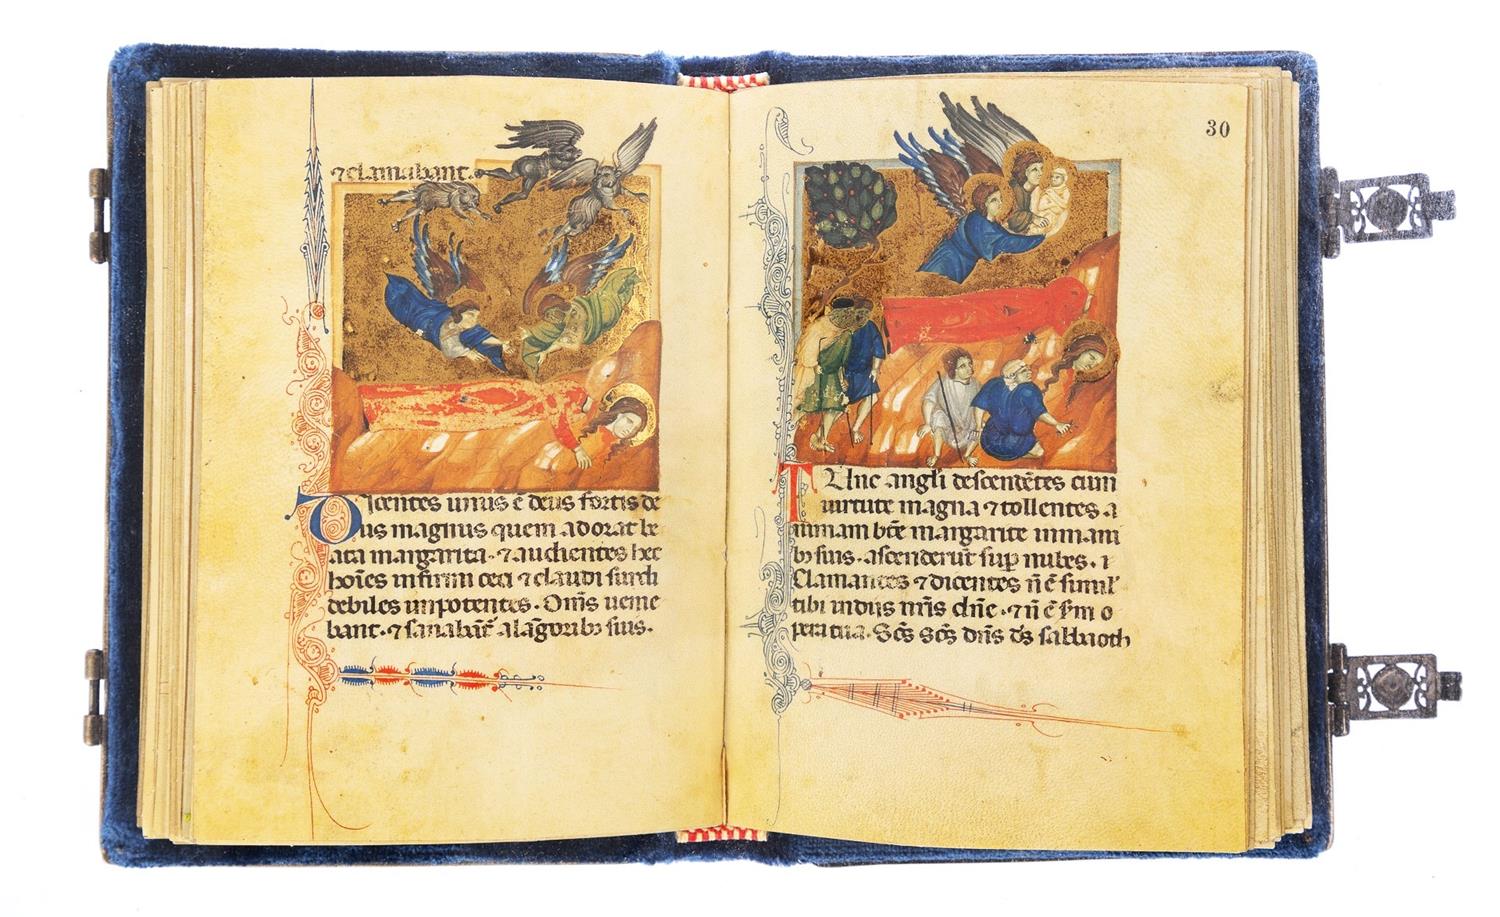 ⁊clamabant.
Dicentes unus ē deus fortis de
us magnus quem adorat be
ata margarita. ⁊ audientes hec
hoīes infirmi ceci ⁊ claudi surdi
debiles inpotentes. Om̄s uenie
bant. ⁊ sanabāt᷑ a lāgoribꝫ suis.
30
TUnc angli descendētes cum
uirtute magna ⁊ tollentes a
nimam btē margarite in mani
bꝫ suis. ascenderūt sup nubes. ⁊
Clamantes ⁊ dicentes n̄ ē simil'
tibi in diis nr̄is dn̄e. ⁊ n̄ ē sm̄ o
pera tua. Scs̄ Scs̄ dn̄s ds̄ sabbaoth